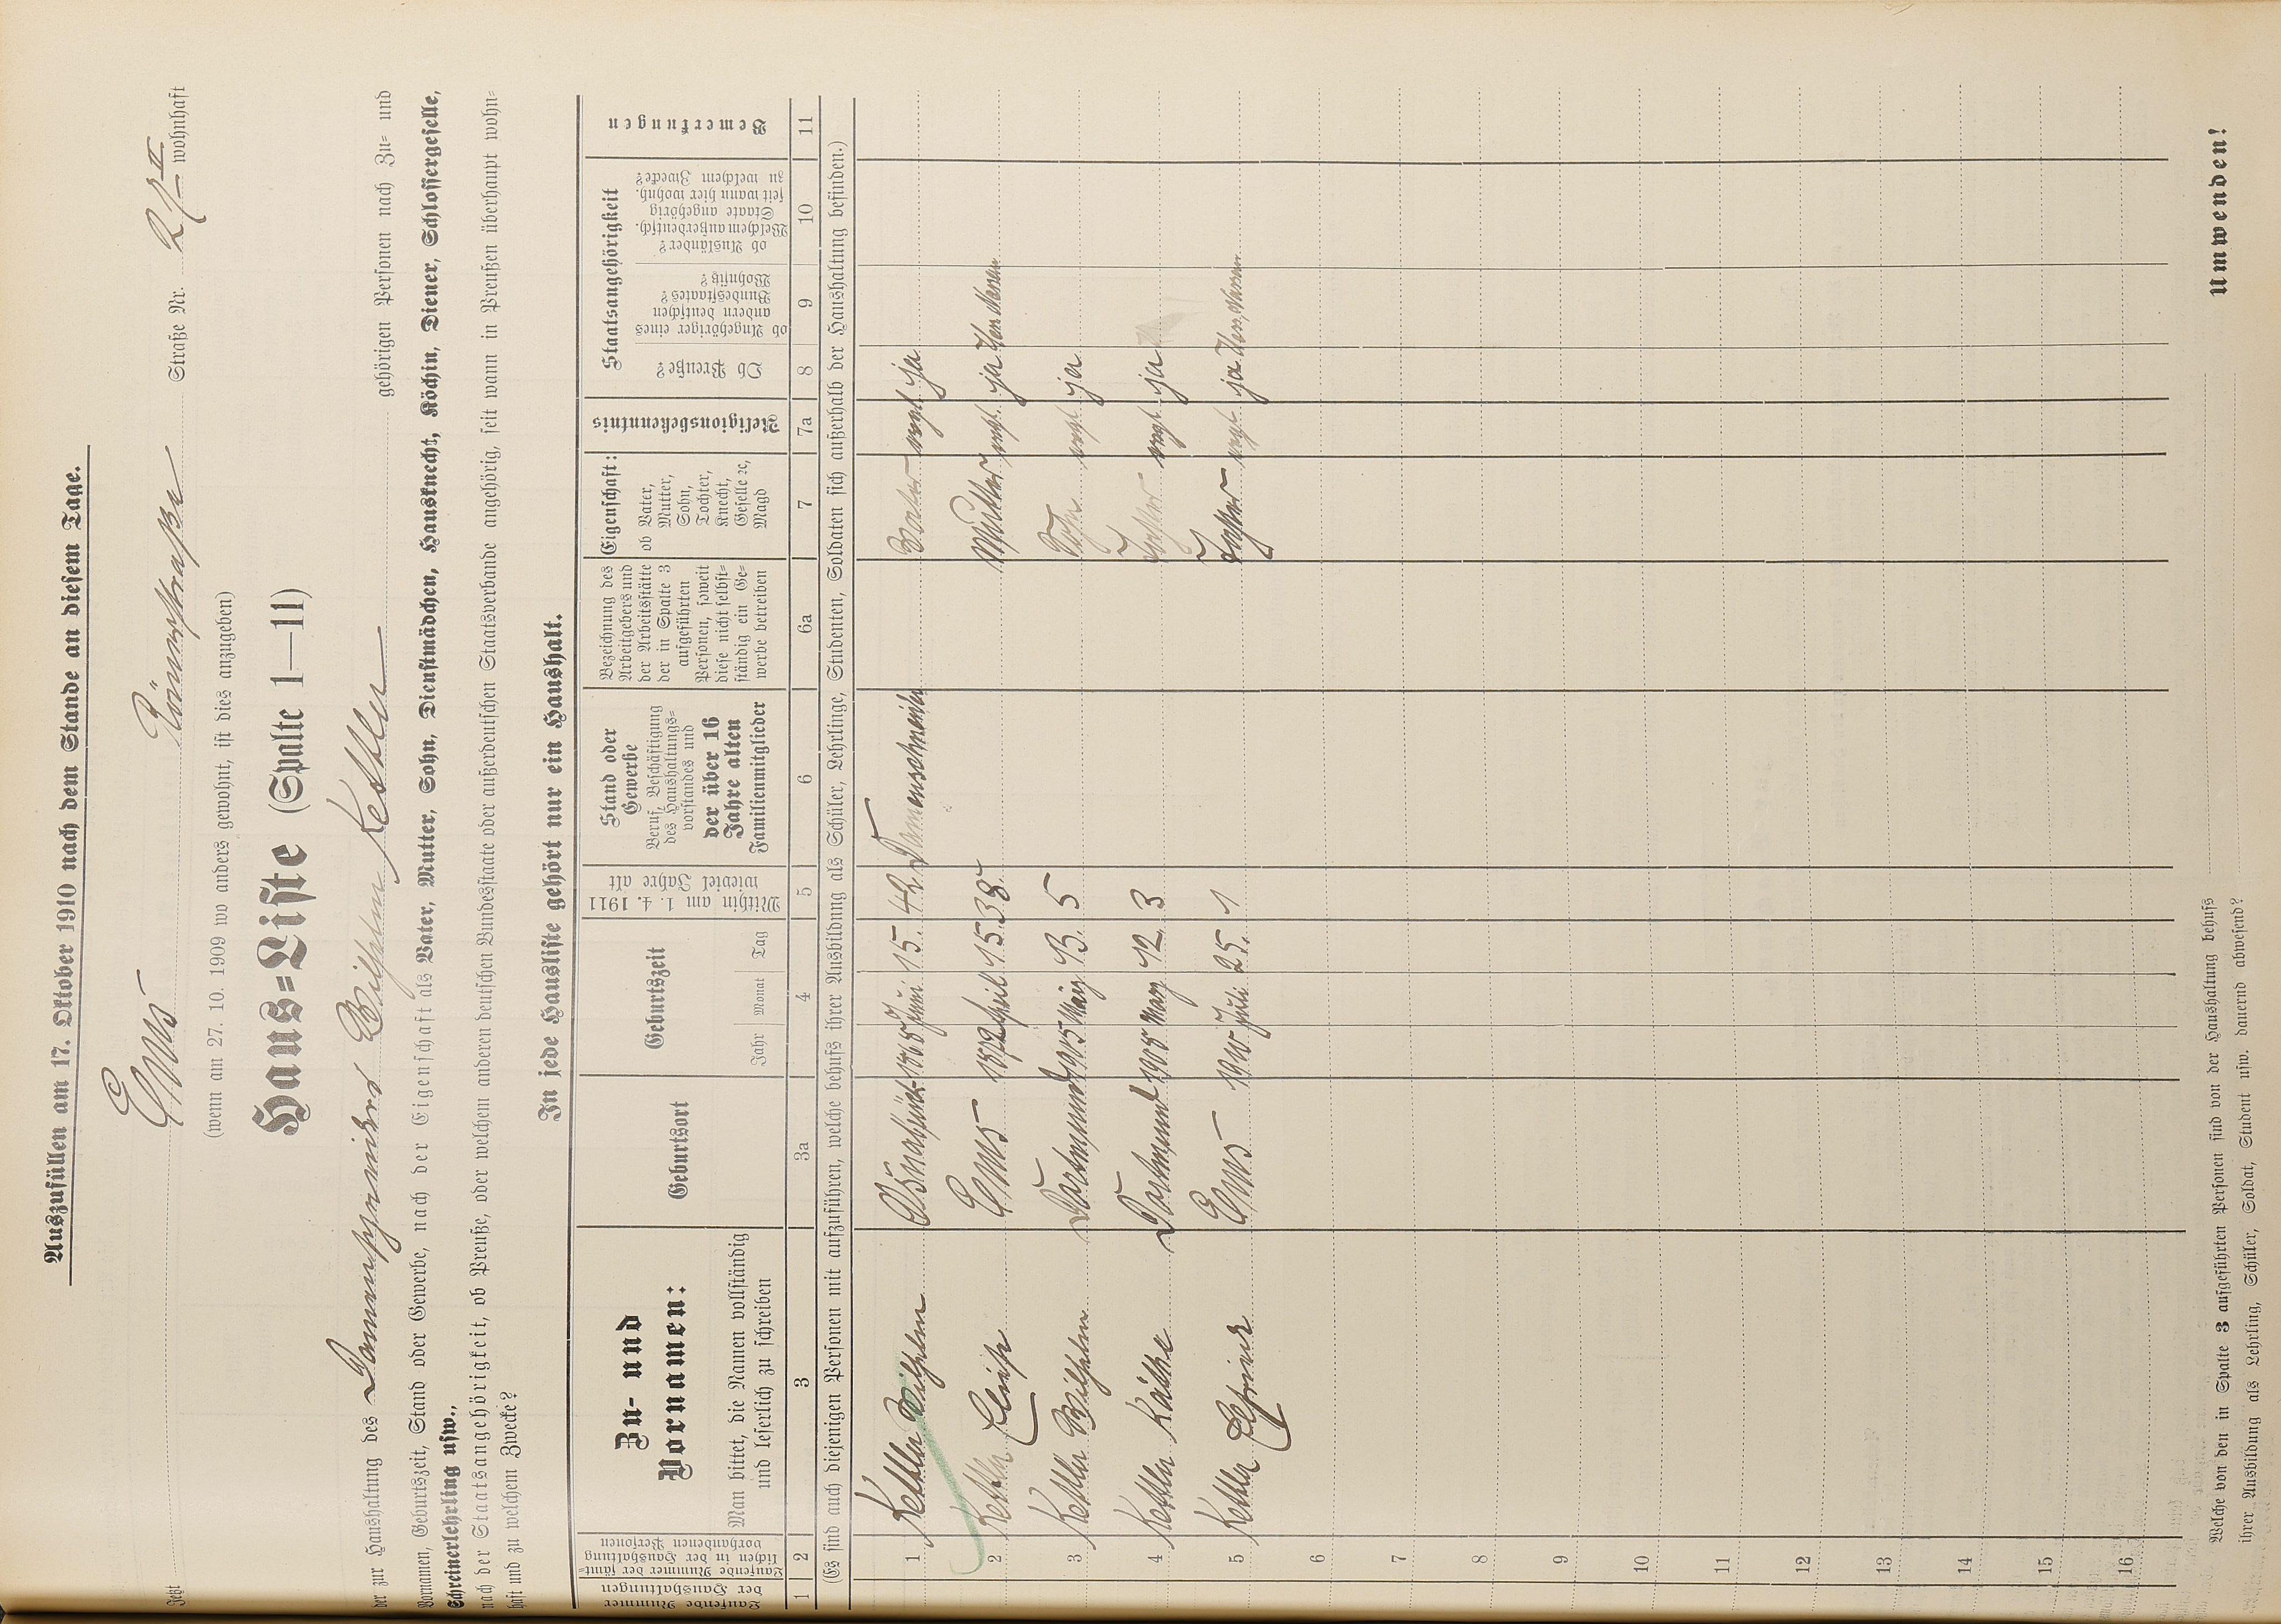 Auszufüllen am 17. Oktober 1910 nach dem Stande an diesem Tage.
Jetzt Ems Römerstraße Straße Nr. 21 II wohnhaft
(wenn am 27. 10. 1909 wo anders gewohnt, ist dies anzugeben)
Haus=Liste (Spalte 1—11)
der zur Haushaltung des Damenschneiders Wilhelm Kettler gehörigen Personen nach Zu= und
Vornamen, Geburtszeit, Stand oder Gewerbe, nach der Eigenschaft als Vater, Mutter, Sohn, Dienstmädchen, Hausknecht, Köchin, Diener, Schlossergeselle,
Schreinerlehrling usw.,
nach der Staatsangehörigkeit, ob Preuße, oder welchem anderen deutschen Bundesstaate oder außerdeutschen Staatsverbande angehörig, seit wann in Preußen überhaupt wohn=
haft und zu welchem Zwecke?
In jede Hausliste gehört nur ein Haushalt.
Laufende Nummer der Haushaltungen
Laufende Nummer der sämt=lichen in der Haushaltung vorhandenen Personen
Zu- und Vornamen:
Man bittet, die Namen vollständig und leserlich zu schreiben
Geburtsort
Geburtszeit
Jahr Monat Tag
Mithin am 1. 4. 1911 wieviel Jahre alt
Stand oder Gewerbe
Beruf, Beschäftigung des Haushaltungs=vorstandes und
der über 16 Jahre alten Familienmitglieder
Bezeichnung des Arbeitgebers und der Arbeitsstätte der in Spalte 3 aufgeführten Personen, soweit diese nicht selbst=ständig ein Ge=werbe betreiben
Eigenschaft:
ob Vater, Mutter, Sohn, Tochter, Knecht, Geselle ec, Magd
Religionsbekenntnis
Staatsangehörigkeit
Ob Preuße?
ob Angehöriger eines andern deutschen Bundesstaates? Wohnsitz?
ob Ausländer? Welchem außerdeutsch. Staate angehörig seit wann hier wohnh. zu welchem Zwecke?
Bemerkungen
1 2 3 3a 4 5 6 6a 7 7a 8 9 10 11
(Es sind auch diejenigen Personen mit aufzuführen, welche behufs ihrer Ausbildung als Schüler, Lehrlinge, Studenten, Soldaten sich außerhalb der Haushaltung befinden.)
1 Kettler Wilhelm Osnabrück 1868 Juni 15. 42 Damenschneider Vater evgl. ja
2 Kettler Elise Ems 1872 April 15. 38 Mutter evgl. ja
3 Kettler Wilhelm Dortmund 1905 May 13. 5 Sohn evgl. ja
4 Kettler Käthe Dortmund 1908 März 12. 3 Tochter evgl. ja
5 Kettler Ems 1910 Juli 25. 1 Tochter evgl. ja
6
7
8
9
10
11
12
13
14
15
16
Welche von den in Spalte 3 aufgeführten Personen sind von der Haushaltung behufs
ihrer Ausbildung als Lehrling, Schüler, Soldat, Student usw. dauernd abwesend?
Umwenden!